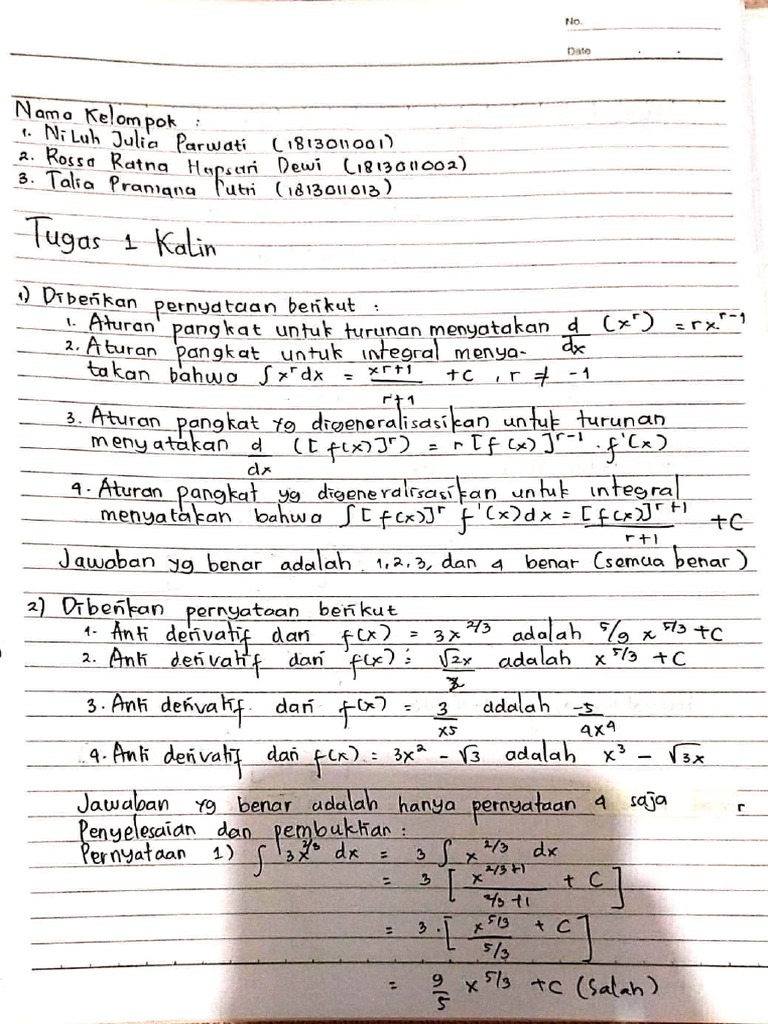 No.
Date
Nama Kelompok :
1. Ni Luh Julia Parwati (1813011001)
2. Rossa Ratna Hapsari Dewi (1813011002)
3. Talia Pramana Putri (1813011013)
Tugas 1 Kalin
1) Diberikan pernyataan berikut :
1. Aturan pangkat untuk turunan menyatakan d/dx (x^r) = rx^(r-1)
2. Aturan pangkat untuk integral menya-
takan bahwa ∫x^r dx = x^(r+1)/(r+1) + C , r ≠ -1
3. Aturan pangkat yg digeneralisasikan untuk turunan
menyatakan d/dx ([f(x)]^r) = r [f(x)]^(r-1) . f'(x)
4. Aturan pangkat yg digeneralisasikan untuk integral
menyatakan bahwa ∫[f(x)]^r f'(x)dx = [f(x)]^(r+1)/(r+1) + C
Jawaban yg benar adalah 1,2,3, dan 4 benar (semua benar)
2) Diberikan pernyataan berikut
1. Anti derivatif dari f(x) = 3x^(2/3) adalah 5/9 x^(5/3) + C
2. Anti derivatif dari f(x) = √2x/ adalah x^(5/3) + C
3. Anti derivatif dari f(x) = 3/x^5 adalah -5/4x^4
4. Anti derivatif dari f(x) = 3x² - √3 adalah x³ - √3x
Jawaban yg benar adalah hanya pernyataan 4 saja
Penyelesaian dan pembuktian :
Pernyataan 1) ∫ 3x^(2/3) dx = 3 ∫ x^(2/3) dx
= 3 [ x^(2/3+1)/(2/3+1) + C ]
= 3 . [ x^(5/3)/(5/3) + C ]
= 9/5 x^(5/3) + C (Salah)